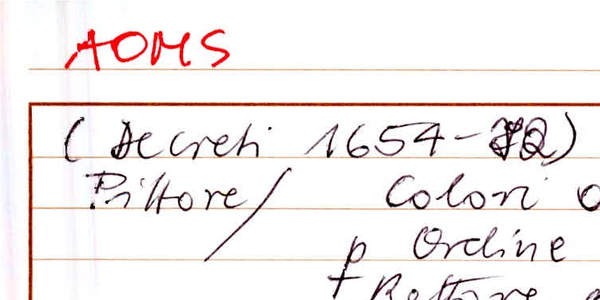 AOMS
(Decreti 1654-72)
Pittore/ Colori
p Ordine